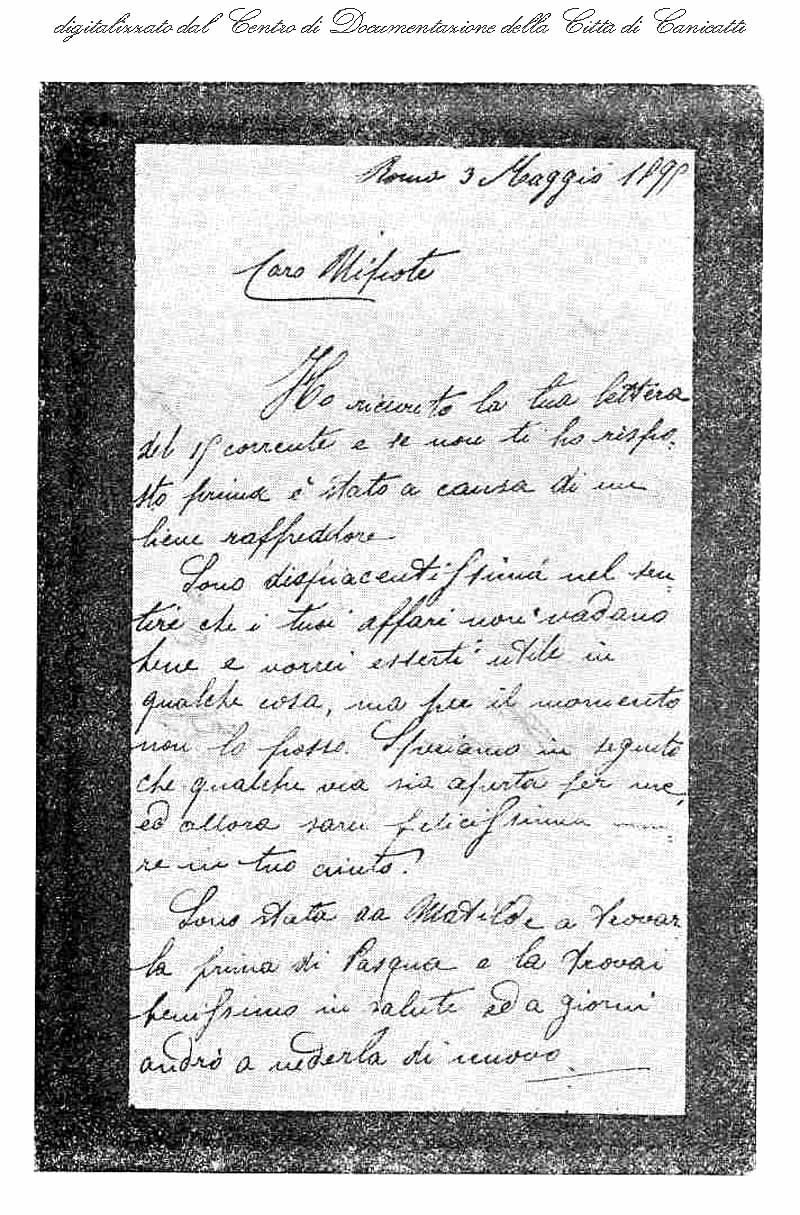 digitalizzato dal Centro di Documentazione della Città di Canicattì
Roma 3 Maggio
Caro Nipote
Ho ricevuto la tua lettera
del corrente e se non ti ho rispo-
sto prima è stato a causa di un
lieve raffreddore
Sono dispiacentissima nel sen-
tire che i tuoi affari non vadano
bene e vorrei esserti utile in
qualche cosa, ma per il momento
non lo posso. Speriamo in seguito
che qualche via sia aperta per me,
ed allora sarei felicissima
re in tuo aiuto.
Sono stata da Matilde a trovar
la prima di Pasqua e la trovai
benissimo in salute ed a giorni
andrò a vederla di nuovo